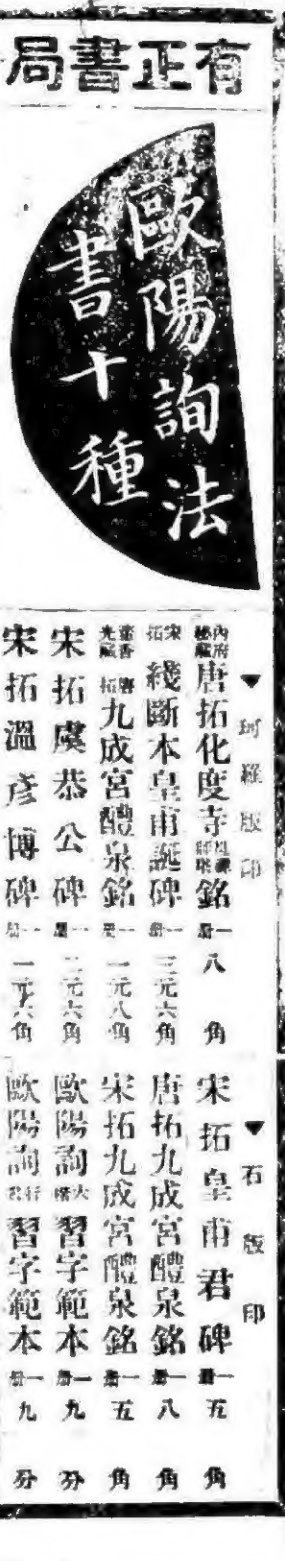 有正書局
歐陽詢法
書十種
▼珂羅版印
內府秘藏唐拓化度寺銘一冊八角
宋拓綫斷本皇甫誕碑一冊三元六角
唐拓九成宮醴泉銘一冊一元八角
宋拓虞恭公碑一冊二元六角
宋拓溫彥博碑一冊一元六角
▼石版印
宋拓皇甫君碑一冊五角
唐拓九成宮醴泉銘一冊八角
宋拓九成宮醴泉銘一冊五角
歐陽詢大楷習字範本一冊九分
歐陽詢行書習字範本一冊九分